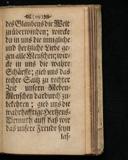 des Glaubens die Welt
zu überwinden; wircke
du in uns die inniglich
und hertzliche Liebe ge-
gen alle Menschen; wir-
cke in uns die wahre
gieb uns das
rechte Saltz zu rechter
Zeit unsern Neben-
Menschen dardurch zu
bekehren; gieb uns die
wahrhafftige Hertzens-
Demuth auf daß wir
das unsere Freude seyn
las-